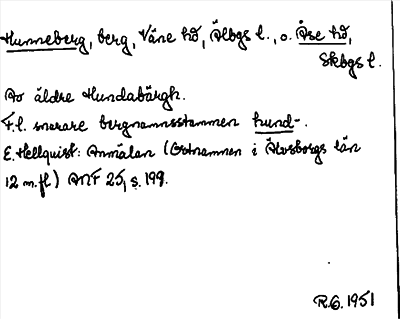 Hunneberg, berg, Väne hd, Älbgs l., o. Åse hd,
Skbgs l.
Av äldre Hundabärgh.
F.l. snarare bergnamnsstammen hund-.
E. Hellquist: Anmälan (Ortnamnen i Älvsborgs län
12 m.fl) ANF 25, s. 199.
R.G. 1951